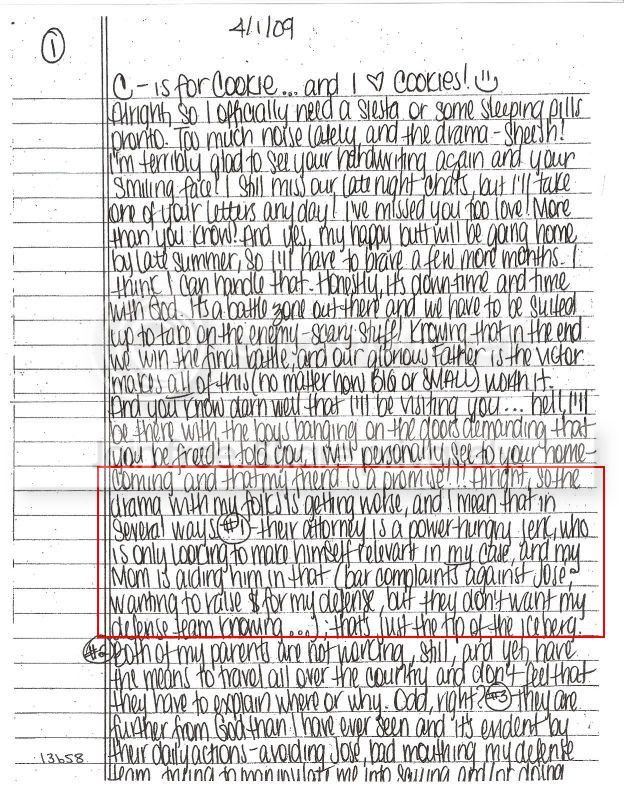 4/1/09
1
C - is for Cookie... and I ♡ Cookies! ☺
Alright, so I officially need a siesta or some sleeping pills
pronto. Too much noise lately and the drama - sheesh!
I'm terribly glad to see your handwriting again and your
smiling face! I still miss our late night chats, but I'll take
one of your letters any day! I've missed you too love! More
than you know! And yes, my happy butt will be going home
by late summer, so I'll have to brave a few more months. I
think I can handle that. Honestly, it's down time and time
with God. It's a battle zone out there and we have to be suited
up to take on the enemy - scary stuff! Knowing that in the end
we win the final battle, and our glorious Father is the victor
makes all of this (no matter how BIG or SMALL) worth it.
And you know darn well that I'll be visiting you... hell, I'll
be there with the boys banging on the doors demanding that
you be freed! I told you, I will personally see to your home-
coming and that my friend is a promise!!! Alright, so the
drama with my folks is getting worse, and I mean that in
several ways. #1 - their attorney is a power hungry jerk, who
is only looking to make himself relevant in my case, and my
Mom is aiding him in that (bar complaints against Jose,
wanting to raise $ for my defense, but they don't want my
defense team knowing...); that's just the tip of the iceberg.
#2 Both of my parents are not working, still, and yet have
the means to travel all over the country and don't feel that
they have to explain where or why. Odd, right? #3 they are
further from God than I have ever seen and it's evident by
their daily actions - avoiding Jose, bad mouthing my defense
team, trying to manipulate me into saying and/or doing
13658